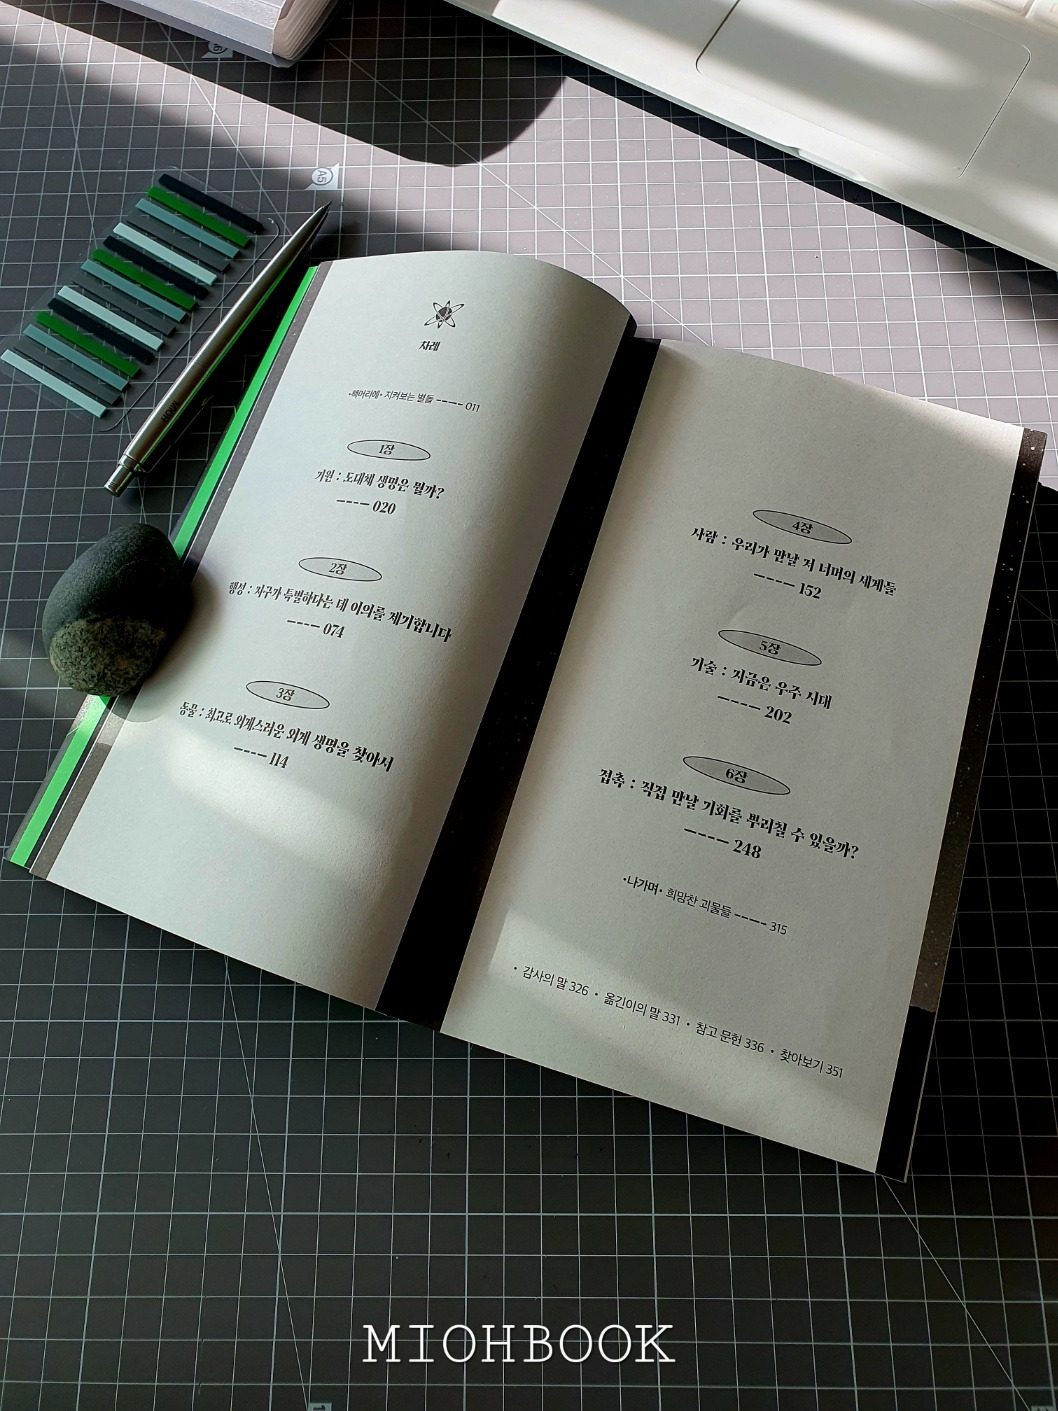 차례
•책머리에• 지켜보는 별들 ---- 011
1장
기원 : 도대체 생명은 뭘까?
---- 020
2장
행성 : 지구가 특별하다는 데 이의를 제기합니다
---- 074
3장
동물 : 최고로 외계스러운 외계 생명을 찾아서
---- 114
4장
사람 : 우리가 만날 저 너머의 세계들
----- 152
5장
기술 : 지금은 우주 시대
----- 202
6장
접촉 : 직접 만날 기회를 뿌리칠 수 있을까?
----- 248
•나가며• 희망찬 괴물들 ----- 315
• 감사의 말 326 • 옮긴이의 말 331 • 참고 문헌 336 • 찾아보기 351
A5
MIOHBOOK